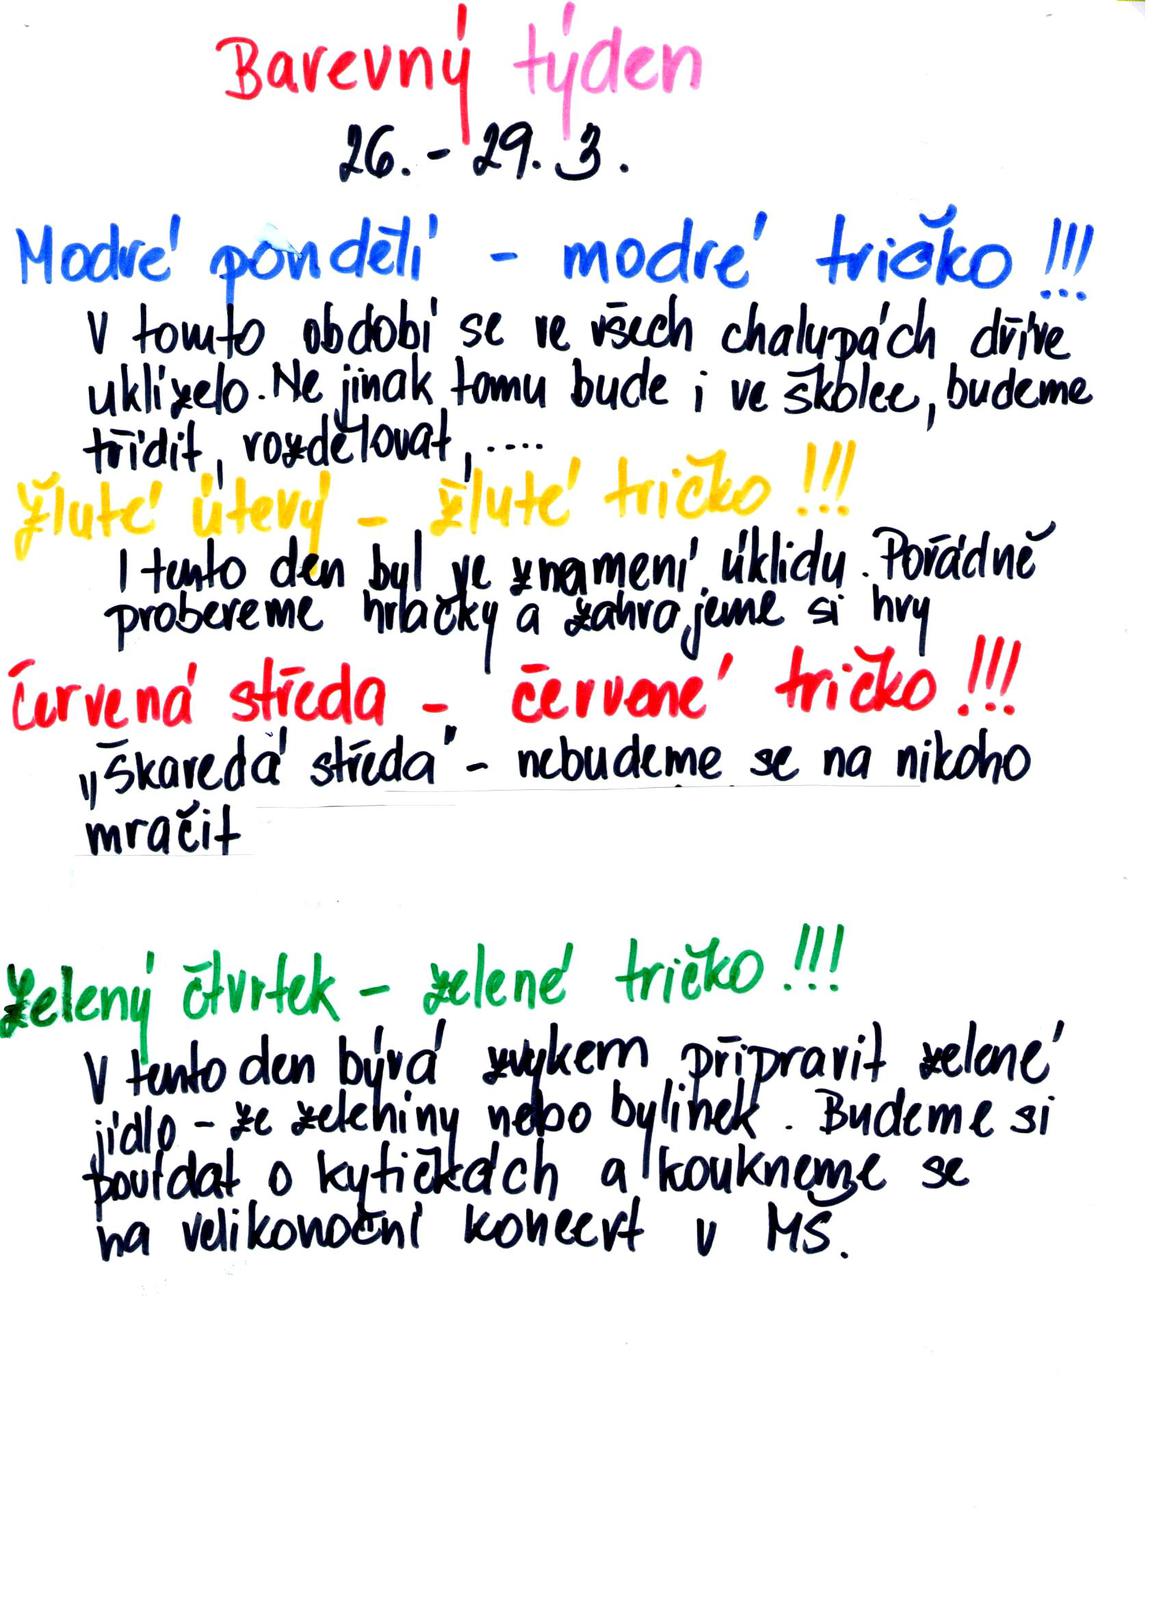 Barevný týden
26. - 29. 3.
Modré pondělí - modré tričko !!!
V tomto období se ve všech chalupách dříve
uklízelo. Ne jinak tomu bude i ve školce, budeme
třídit, rozdělovat, ....
Žluté úterý - žluté tričko !!!
I tento den byl ve znamení úklidu. Pořádně
probereme hračky a zahrajeme si hry
Červená středa - červené tričko !!!
„Škaredá středa" - nebudeme se na nikoho
mračit
Zelený čtvrtek - zelené tričko !!!
V tento den bývá zvykem připravit zelené
jídlo - ze zeleniny nebo bylinek. Budeme si
povídat o kytičkách a koukneme se
na velikonoční koncert v MŠ.